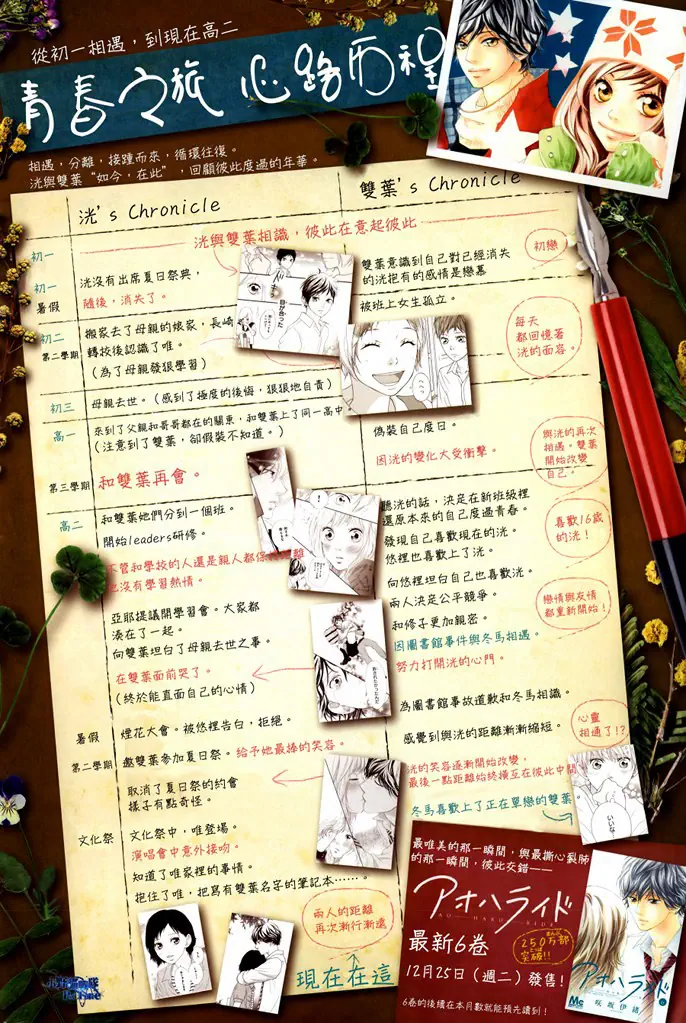 從初一相遇，到現在高二
青春之旅 心路历程
相遇，分離，接踵而來，循環往復。
洸與雙葉“如今，在此”，回顧彼此度過的年華。
洸's Chronicle
雙葉's Chronicle
初一
洸與雙葉相識，彼此在意起彼此
初戀
初一
暑假
洸沒有出席夏日祭典，
隨後，消失了。
雙葉意識到自己對已經消失
的洸抱有的感情是戀慕
被班上女生孤立。
初二
第二學期
搬家去了母親的娘家，長崎
轉校後認識了唯。
(為了母親發狠學習)
每天
都回憶著
洸的面容。
初三
母親去世。(感到了極度的後悔，狠狠地自責)
高一
來到了父親和哥哥都在的關東，和雙葉上了同一高中
(注意到了雙葉，卻假裝不知道。)
偽裝自己度日。
因洸的變化大受衝擊。
與洸的再次
相遇。雙葉
開始改變
自己。
第三學期
和雙葉再會。
高二
和雙葉她們分到一個班。
開始leaders研修。
不管和學校的人還是親人都保持距離
也沒有學習熱情。
聽洸的話，決定在新班級裡
還原本來的自己度過青春。
發現自己喜歡現在的洸。
悠裡也喜歡上了洸。
喜歡16歲
的洸！
向悠裡坦白自己也喜歡洸。
兩人決定公平競爭。
和修子更加親密。
戀情與友情
都重新開始！
因圖書館事件與冬馬相遇。
努力打開洸的心門。
亞耶提議開學習會。大家都
湊在了一起。
向雙葉坦白了母親去世之事。
在雙葉面前哭了。
(終於能直面自己的心情)
暑假
煙花大會。被悠裡告白，拒絕。
為圖書館事故道歉和冬馬相識。
感覺到與洸的距離漸漸縮短。
心靈
相通了！？
第二學期
邀雙葉參加夏日祭。給予她最棒的笑容。
取消了夏日祭的約會
樣子有點奇怪。
洸的笑容逐漸開始改變，
最後一點距離始終橫亙在彼此中間。
冬馬喜歡上了正在單戀的雙葉。
いいな
文化祭
文化祭中，唯登場。
演唱會中意外接吻。
知道了唯家裡的事情。
抱住了唯，把寫有雙葉名字的筆記本……。
兩人的距離
再次漸行漸遠
現在在這
最唯美的那一瞬間，與最撕心裂肺
的那一瞬間，彼此交錯——
アオハライド
AO HARU RIDE
最新6卷
250万部
突破!!
12月25日（週二）發售！
6卷的後續在本月數就能預先讀到！
アオハライド
咲坂伊緒